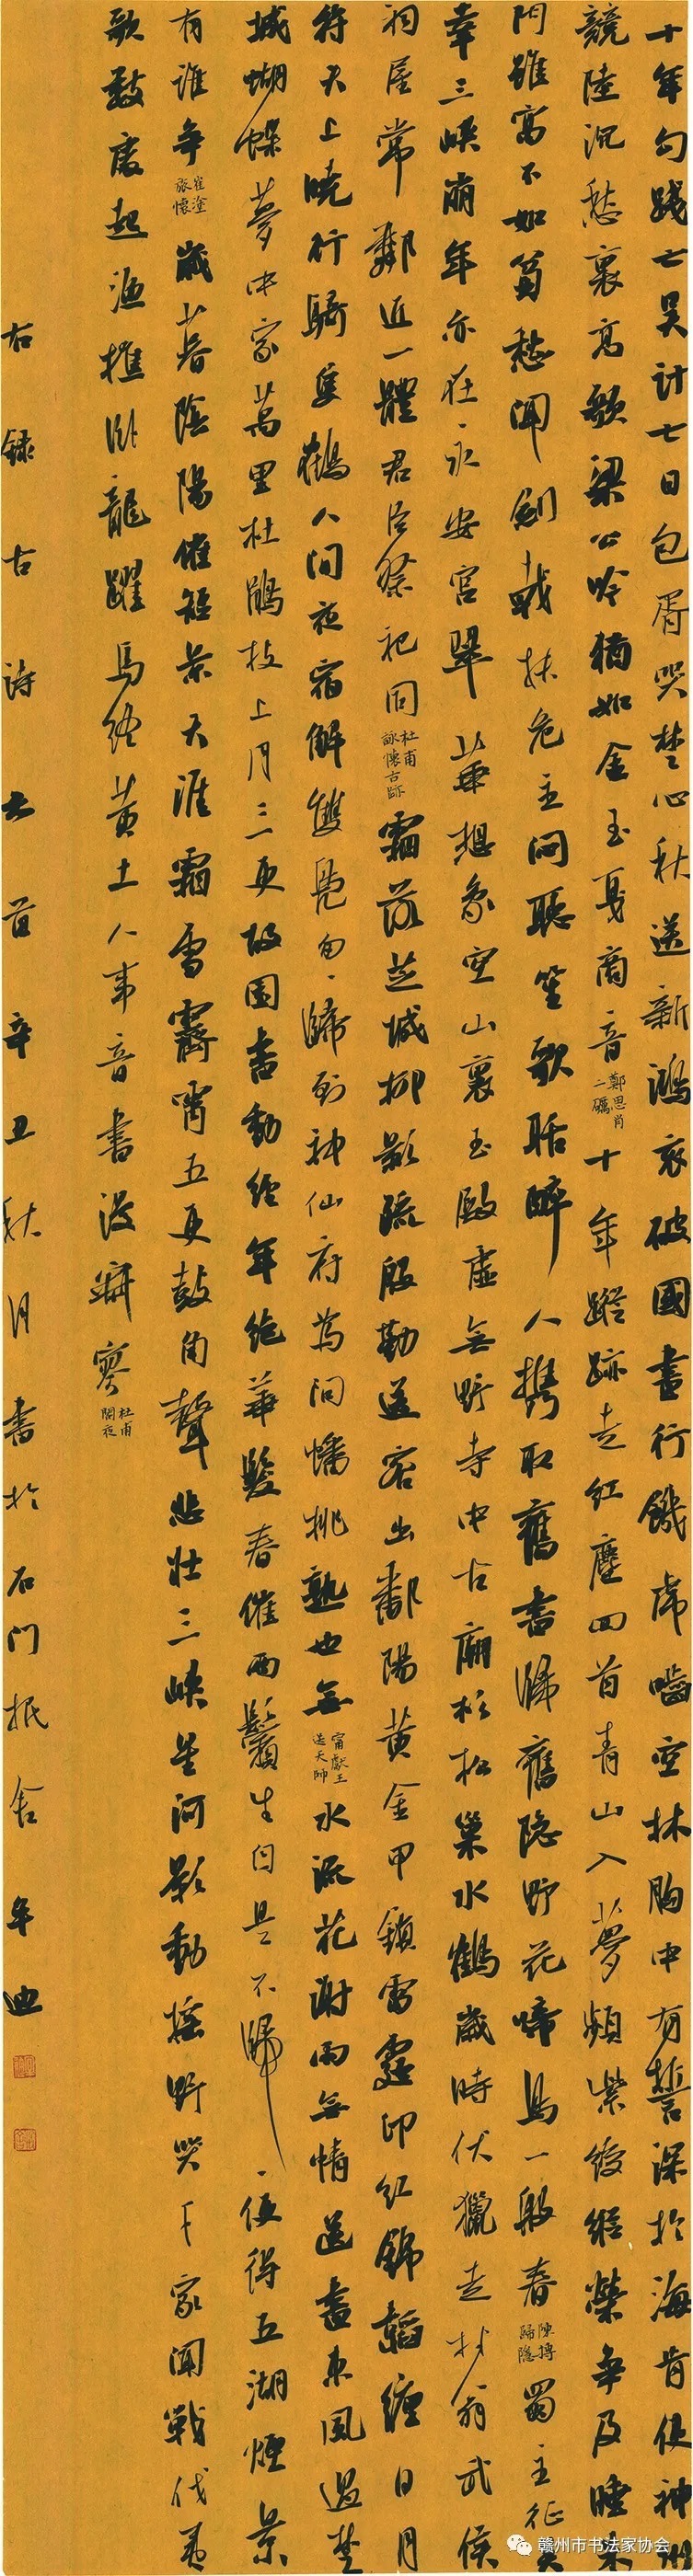 十年勾踐亡吳計七日包胥哭楚心秋送新鴻哀破國晝行饑虎嚙空林胸中有誓深於海肯使神州
競陸沉愁裏高歌梁公吟猶如金玉戛商音鄭思肖二礪十年蹤跡走紅塵回首青山入夢頻紫綬縱榮爭及睡朱
門雖富不如貧愁聞劍戟扶危主悶聽笙歌聒醉人攜取舊書歸舊隱野花啼鳥一般春陳摶歸隱蜀主征吳
幸三峽崩年亦在永安宮翠華想象空山裏玉殿虛無野寺中古廟杉松巢水鶴歲時伏臘走村翁武侯
祠屋常鄰近一體君臣祭祀同杜甫詠懷古跡霜落芝城柳影疏殷勤送客出鄱陽黃金甲鎖雷霆印紅錦韜纏日月
符天上曉行騎隻鶴人間夜宿解雙鳧匆、歸到神仙府為問蟠桃熟也無甯獻王送天師水流花謝兩無情送盡東風過楚
城蝴蝶夢中家萬里杜鵑枝上月三更故園書動經年絕華髮春催兩鬢生自是不歸、便得五湖煙景
有誰爭崔塗旅懷歲暮陰陽催短景天涯霜雪霽宵五更鼓角聲悲壯三峽星河影動搖野哭千家聞戰伐夷
歌數處起漁樵臥龍躍馬終黃土人事音書漫寂寥杜甫閣夜
右錄古詩六首辛丑秋月書於石門抵舍年迪
赣州市书法家协会